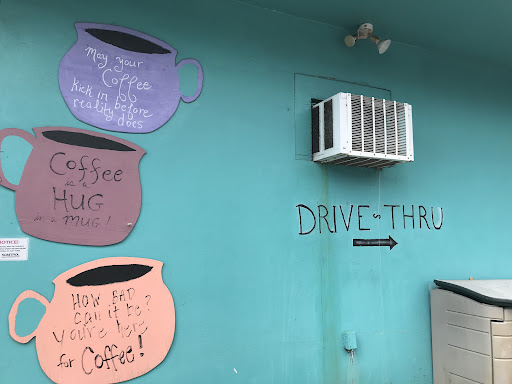 May your
Coffee
kick in before
reality
does
Coffee
is a
HUG
in a MUG!
NOTICE!
HOW BAD
can it be?
You're here
for Coffee!
DRIVE~THRU